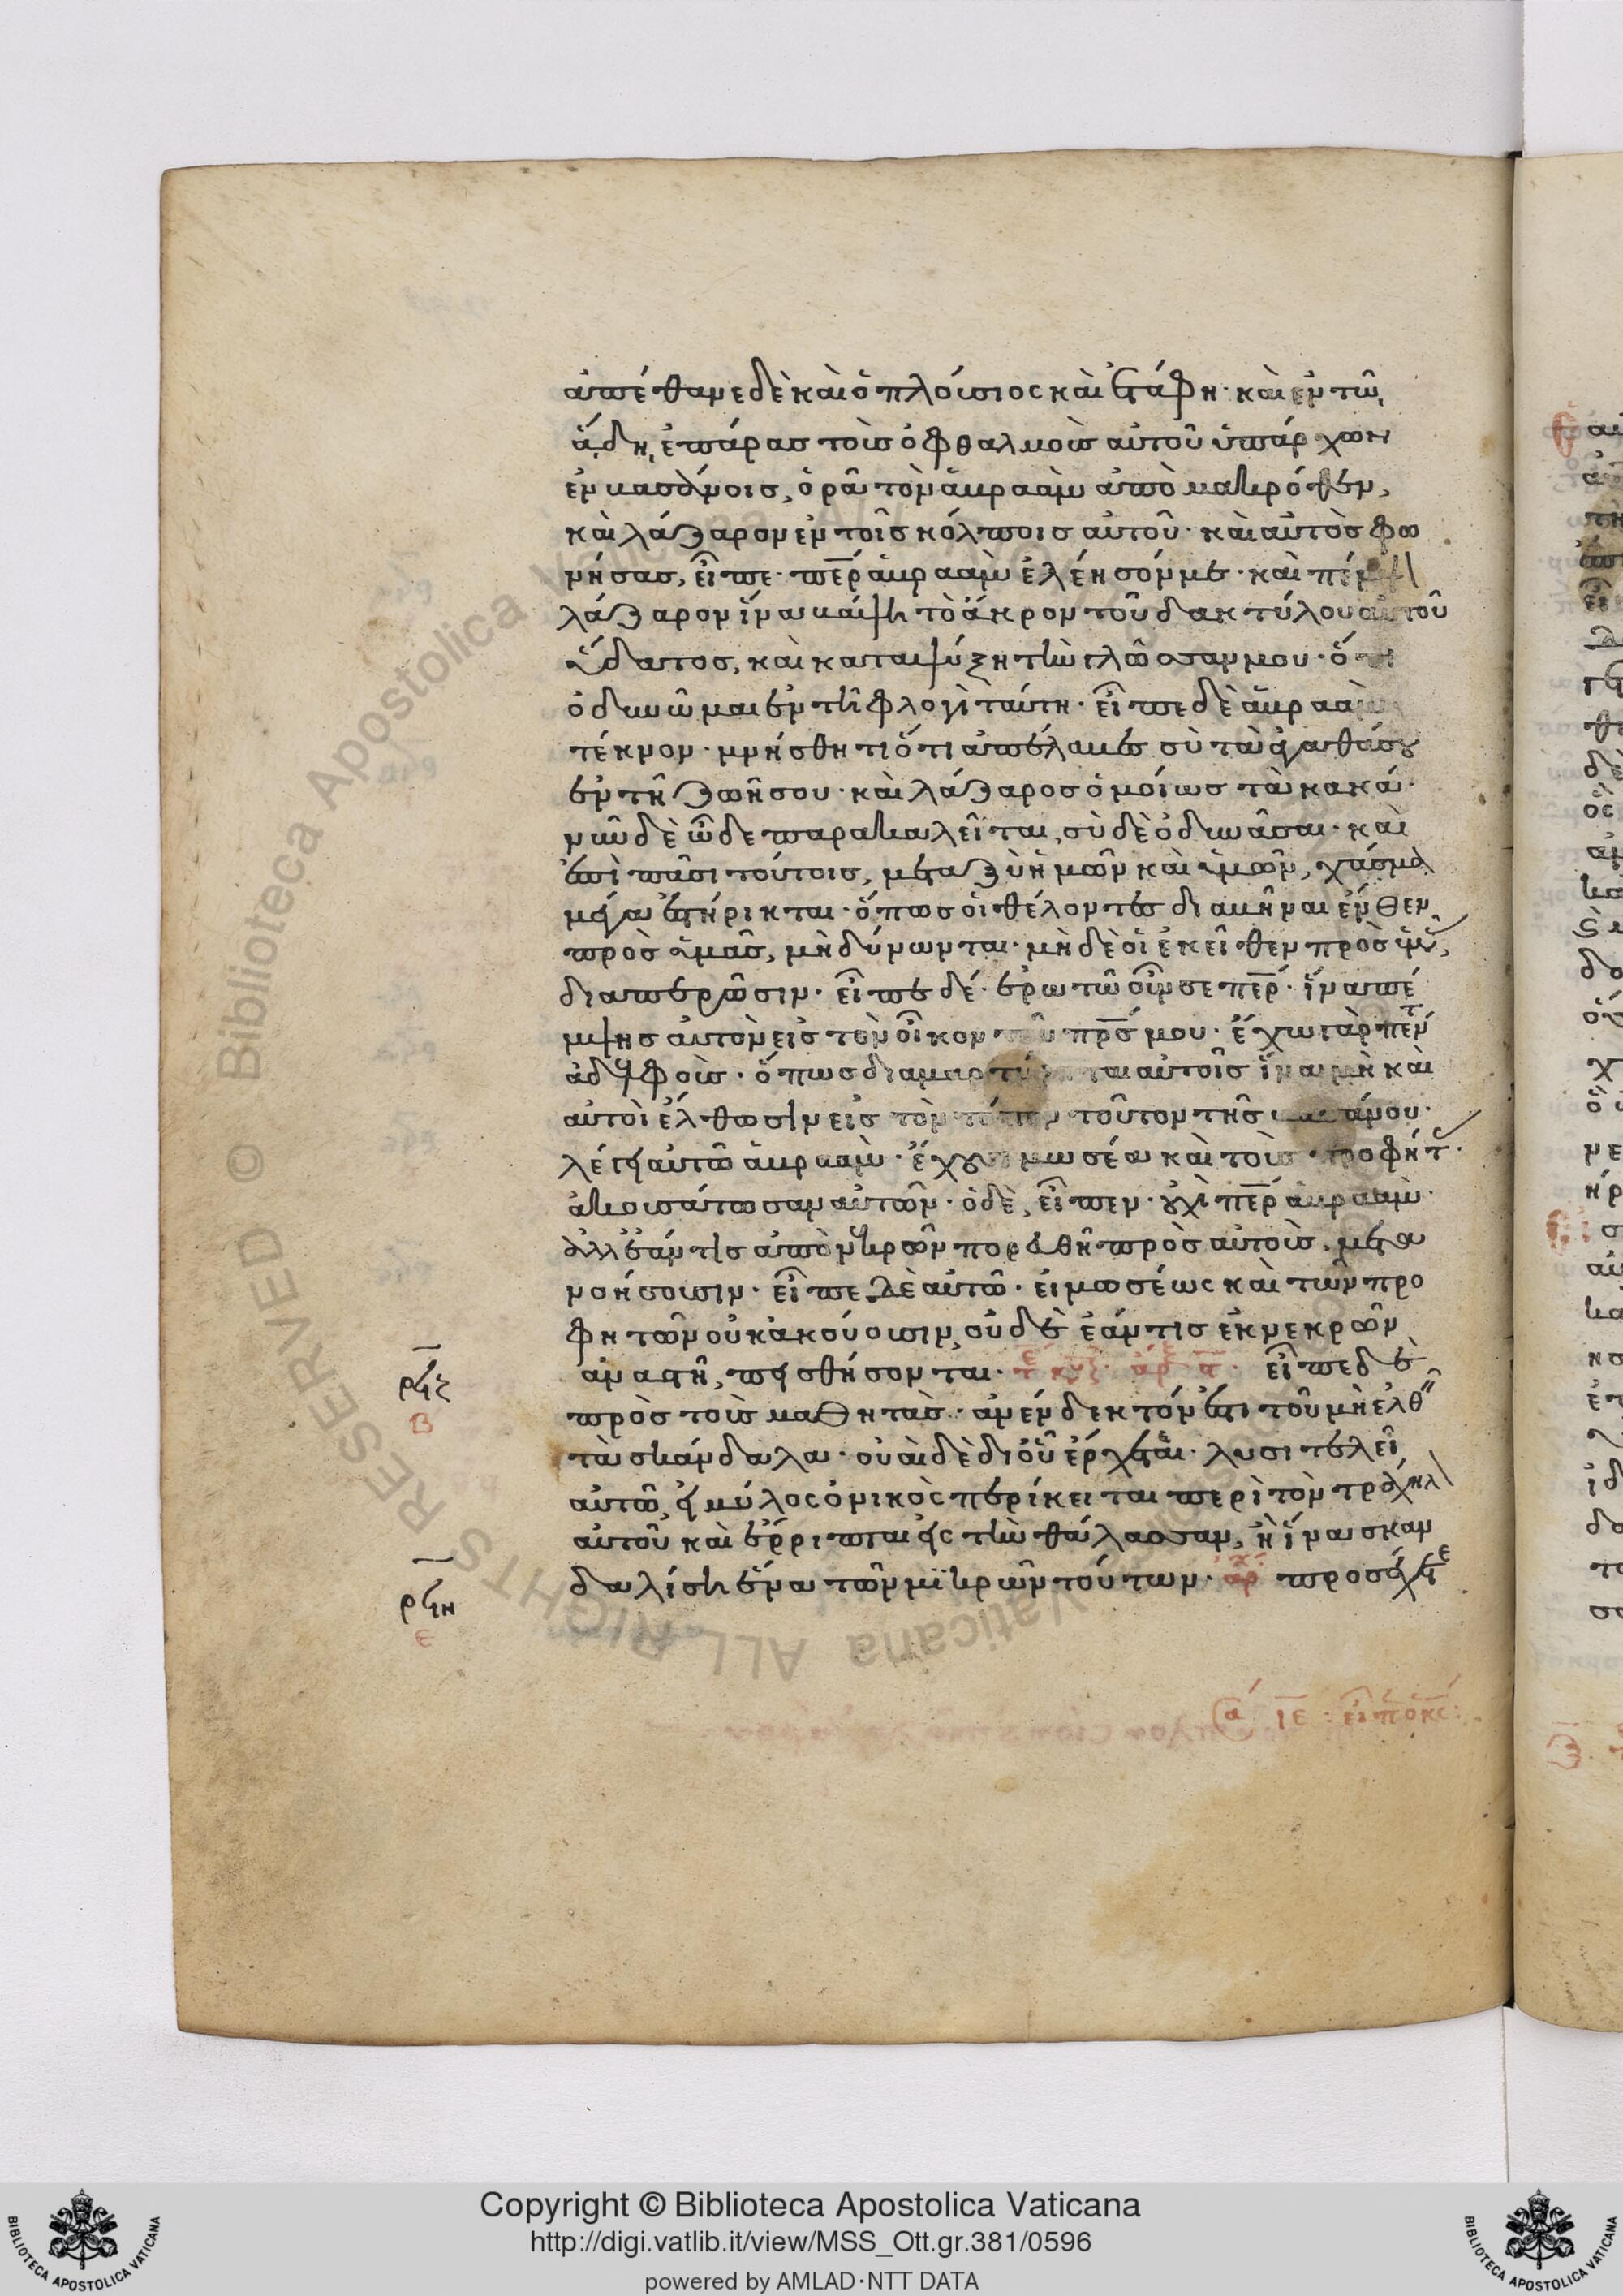 ἀπέθανε δὲ καὶ ὁ πλούσιος καὶ ἐτάφη· καὶ ἐν τῶ
ἅδη, ἐπάρας τοὺς ὀφθαλμοὺς αὐτοῦ ὑπάρχων
ἐν βασάνοις, ὁρᾶ τὸν ἀβραὰμ ἀπὸ μακρόθεν,
καὶ λάζαρον ἐν τοῖς κόλποις αὐτοῦ· καὶ αὐτὸς φω
νήσας, εἶπε· περ ἀβραὰμ ἐλέησόν με· καὶ
λάζαρον ἵνα βάψη τὸ ἄκρον τοῦ δακτύλου αὐτοῦ
ὕδατος, καὶ καταψύξη τὴν γλῶσσαν μου· ὅτι
ὀδυνῶμαι ἐν τῆ φλογὶ ταύτη· εἶπε δὲ ἀβραὰμ
τέκνον· μνήσθητι ὅτι ἀπέλαβες σὺ τὰ ἀγαθά σου
ἐν τῆ ζωῆ σου· καὶ λάζαρος ὁμοίως τὰ κακά·
νῦν δὲ ὧδε παρακαλεῖται, σὺ δὲ ὀδυνᾶσαι· καὶ
ἐπὶ πᾶσι τούτοις, μεταξὺ ἡμῶν καὶ ὑμῶν, χάσμα
μέγα ἐστήρικται· ὅπως οἱ θέλοντες διαβῆναι ἔνθεν
πρὸς ὑμᾶς, μὴ δύνωνται· μὴ δὲ οἱ ἐκεῖθεν πρὸς ἡμ,
διαπερῶσιν· εἶπε δέ· ἐρωτῶ οὖν σε περ· ἵνα πέ
μψης αὐτὸν εἰς τὸν οἶκον τοῦ πρς μου· ἔχω γὰρ πέντ
ἀδελφούς· ὅπως διαμαρτύρηται αὐτοῖς ἵνα μὴ καὶ
αὐτοὶ ἔλθωσιν εἰς τὸν τόπον τοῦτον τῆς βασάνου·
λέγει αὐτῶ ἀβραὰμ· ἔχουσι μωσέα καὶ τοὺς προφήτ·
ἀκουσάτωσαν αὐτῶν· ὁ δὲ, εἶπεν· οὐχὶ περ ἀβραὰμ·
ἀλλ ἐάν τις ἀπὸ νεκρῶν πορευθῆ πρὸς αὐτοὺς, μετα
νοήσουσιν· εἶπε δὲ αὐτῶ· εἰ μωσέως καὶ τῶν προ
φητῶν οὐκ ἀκούουσιν, οὐδὲ ἐάν τις ἐκ νεκρῶν
ἀναστῆ, πεισθήσονται· εἶπε δὲ
ρϟζ
β
πρὸς τοὺς μαθητάς· ἀνένδεκτόν ἐστι τοῦ μὴ ἐλθ
τὰ σκάνδαλα· οὐαὶ δὲ δι οὗ ἔρχεται· λυσιτελεῖ
αὐτῶ, εἰ μύλος ὀνικὸς περίκειται περὶ τὸν τράχηλ
αὐτοῦ καὶ ἔρριπται εἰς τὴν θάλασσαν, ἢ ἵνα σκαν
δαλίση ἕνα τῶν μικρῶν τούτων· ἀρχ προσέχετε
ρϟη
ε
ιε : εἶπ ὁ κς:
Copyright © Biblioteca Apostolica Vaticana
http://digi.vatlib.it/view/MSS_Ott.gr.381/0596
powered by AMLAD·NTT DATA